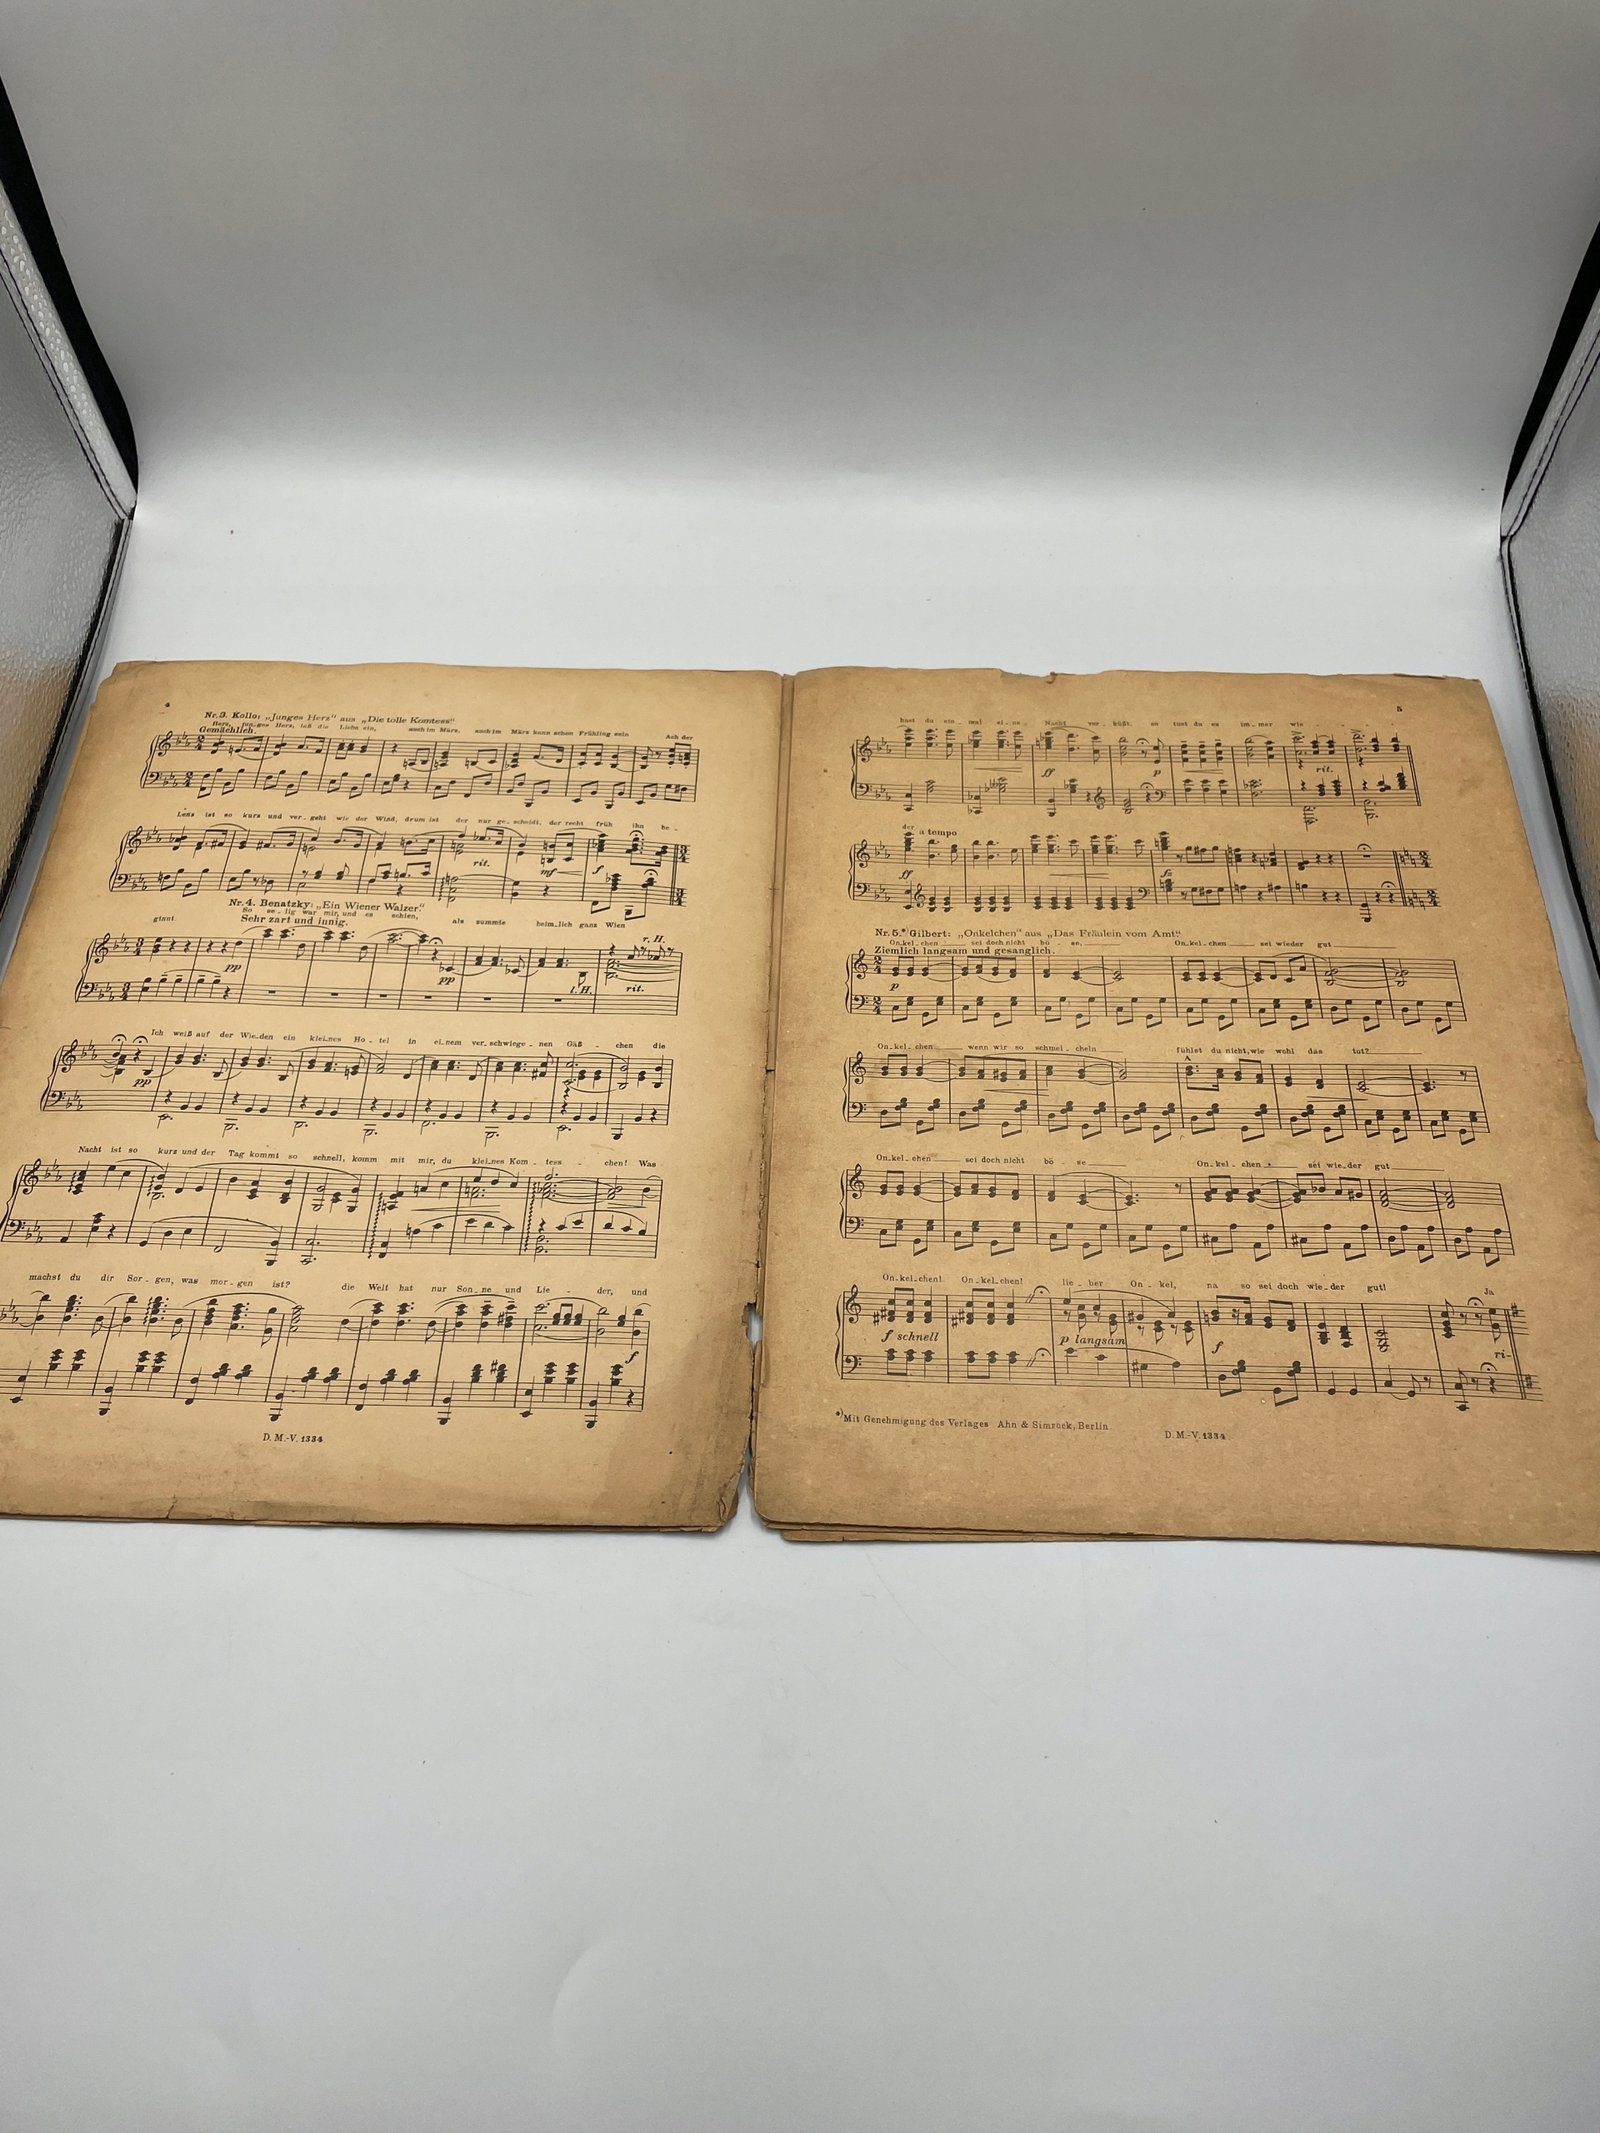 4
Nr. 3. Kollo: „Junges Herz" aus „Die tolle Komtess"
Herz, jun-ges Herz, laß die Liebe ein, auch im März, auch im März kann schon Frühling sein Ach der
Gemächlich.
Lenz ist so kurz und ver-geht wie der Wind, drum ist der nur ge-scheidt, der recht früh ihn be-
rit. mf f
Nr. 4. Benatzky: „Ein Wiener Walzer."
ginnt. So se-lig war mir, und es schien, als summte heim-lich ganz Wien
Sehr zart und innig.
r. H.
pp pp l. H. rit.
Ich weiß auf der Wie-den ein klei-nes Ho-tel in ei-nem ver-schwiege-nen Gäß-chen die
pp
Nacht ist so kurz und der Tag kommt so schnell, komm mit mir, du klei-nes Kom-tess-chen! Was
machst du dir Sor-gen, was mor-gen ist? die Welt hat nur Son-ne und Lie-der, und
f
D. M.-V. 1334
5
hast du ein-mal ei-ne Nacht ver-küßt, so tust du es im-mer wie-
ff p rit.
der a tempo
ff
Nr. 5.*) Gilbert: „Onkelchen" aus „Das Fräulein vom Amt"
On-kel-chen sei doch nicht bö-se, On-kel-chen sei wieder gut
Ziemlich langsam und gesanglich.
p
On-kel-chen wenn wir so schmei-cheln fühlst du nicht, wie wohl das tut?
On-kel-chen sei doch nicht bö-se On-kel-chen sei wie-der gut
On-kel-chen! On-kel-chen! lie-ber On-kel, na so sei doch wie-der gut! Ja
f schnell p langsam f ri-
*) Mit Genehmigung des Verlages Ahn & Simrock, Berlin
D. M.-V. 1334